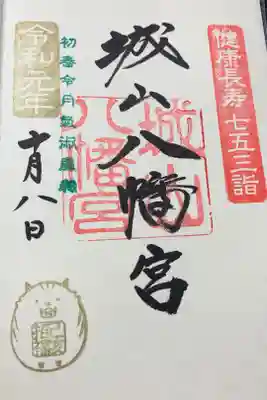 健康長寿 七五三詣
城山八幡宮
城山
八幡宮
初春令月氣淑風和
令和元年
十月八日